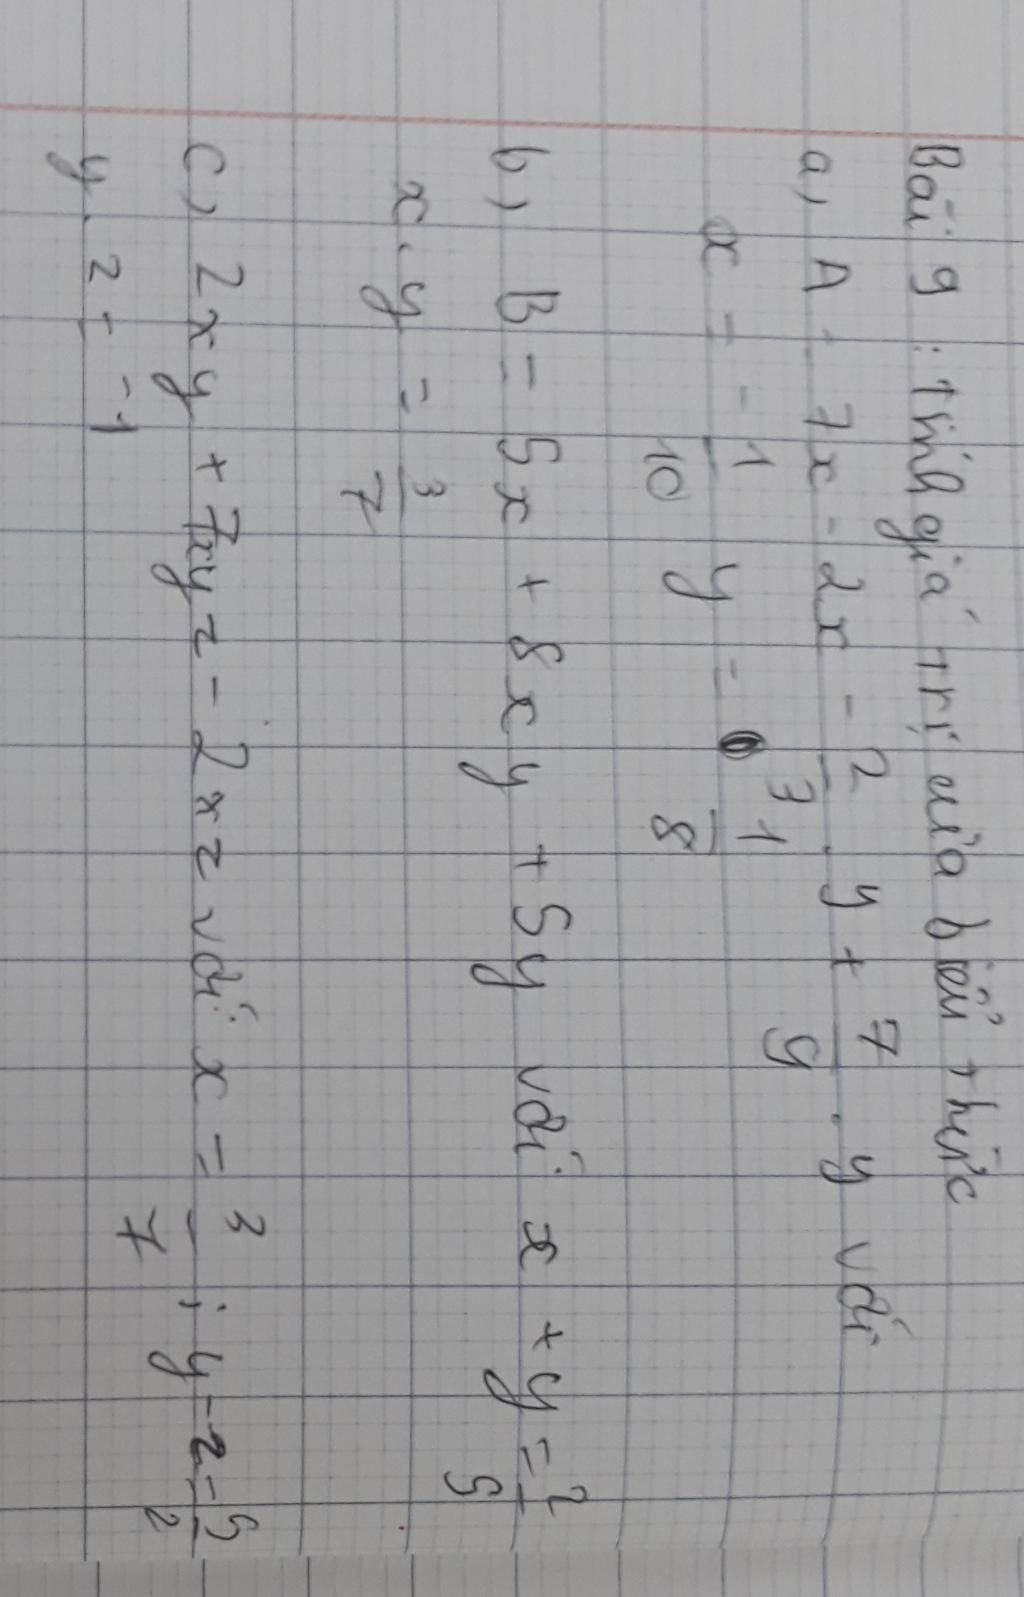 Bài 9 : Tính giá trị của biểu thức
a, A = 7x - 2x - 2/3 . y + 7/9 . y với
x = -1/10 y = 1/8
b, B = 5x + 8xy + 5y với x + y = 2/5
x.y = 3/7
c, 2xy + 7xyz - 2xz với x = 3/7 ; y - z = 5/2
y. z = -1